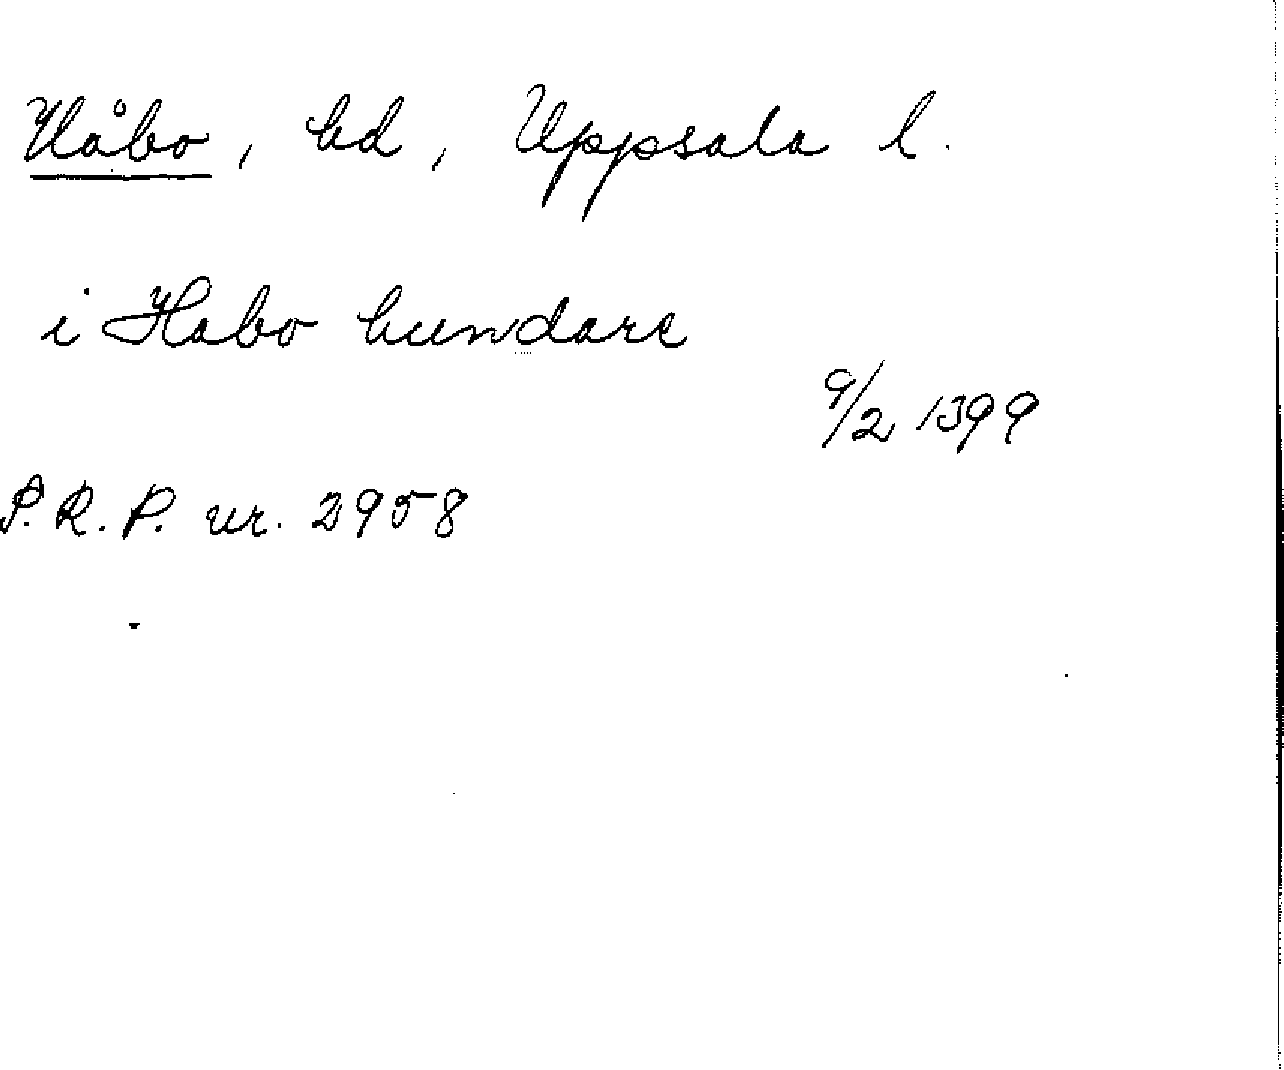 Håbo, hd, Uppsala l.
i Habo hundare
9/2 1399
P.R.P. nr. 2958